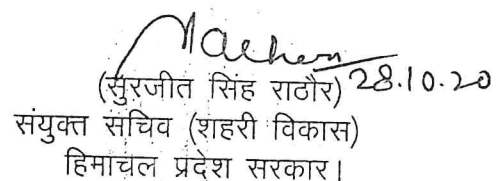 (सुरजीत सिंह राठौर) 28.10.20
संयुक्त सचिव (शहरी विकास)
हिमाचल प्रदेश सरकार।